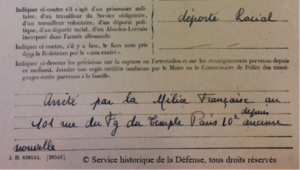 Indiquer ci-contre s'il s'agit d'un prisonnier militaire,
d'un travailleur du Service obligatoire,
d'un travailleur volontaire, d'un déporté politique,
d'un déporté racial, d'un Alsacien-Lorrain
incorporé dans l'armée allemande.
déporté Racial
Indiquer ci-contre, s'il y a lieu, le faux nom pris
dans la Résistance par le « non rentré »
Indiquer ci-dessous les précisions sur la capture ou l'arrestation et sur les renseignements parvenus depuis
ce moment. Joindre une copie certifiée conforme par le Maire ou le Commissaire de Police des témoignages
écrits parvenus à la famille.
Arrêté par la Milice Française au
101 rue du Fg du Temple Paris 10e depuis aucune
nouvelle
© Service historique de la Défense, tous droits réservés